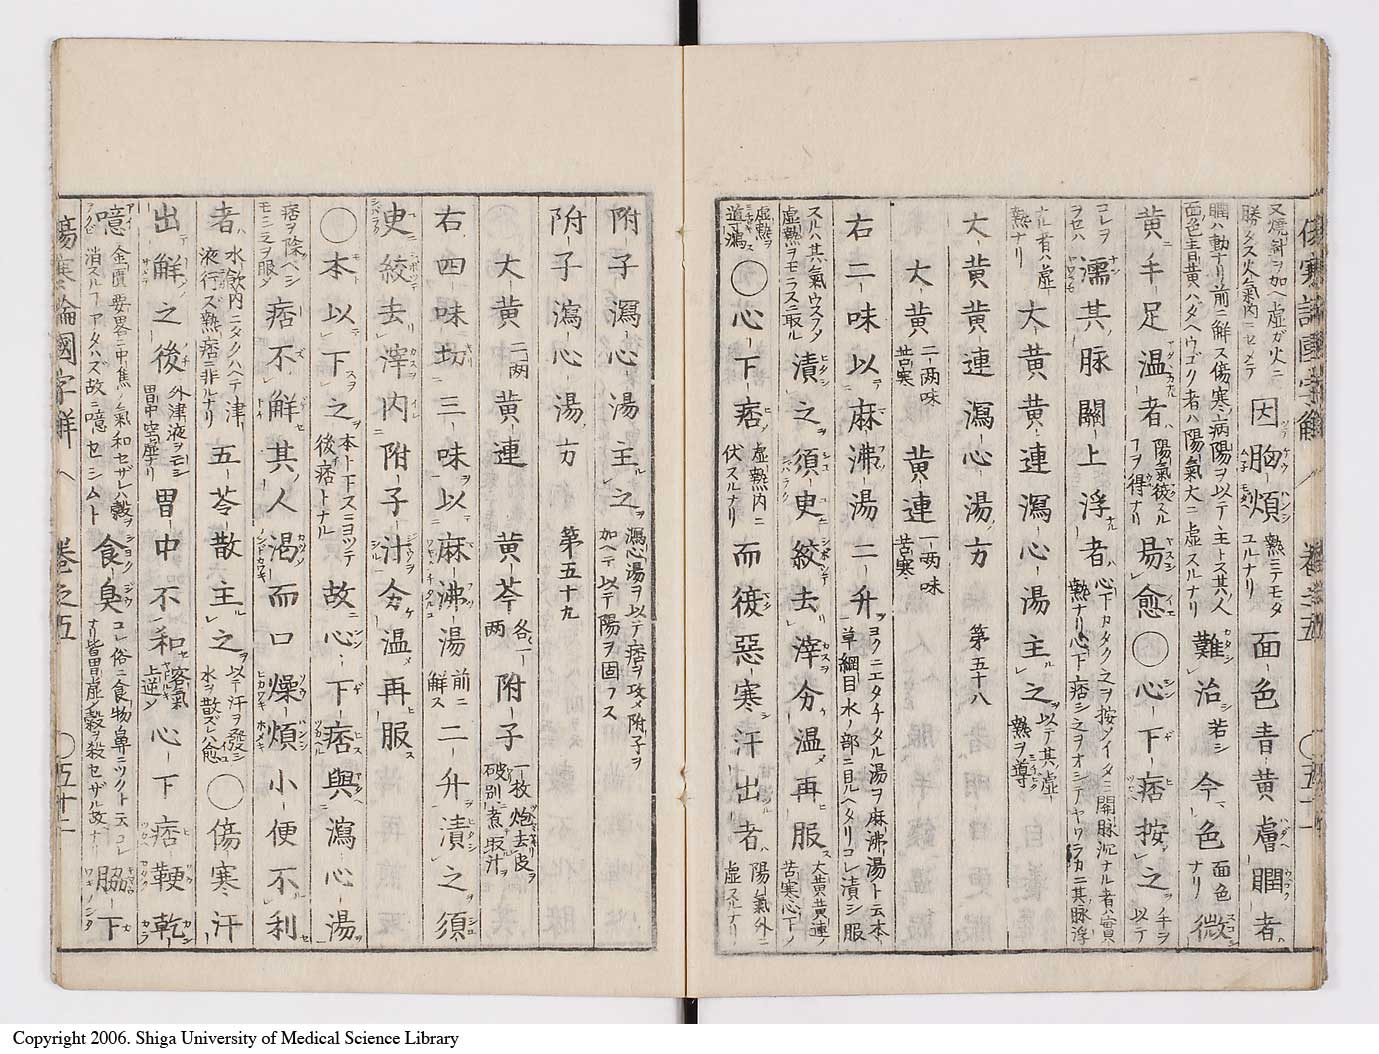 傷寒論國字解 八 卷之五 ○五十一
又燒針ヲ加ヘ虛ガ火ニ勝タズ火氣內ニセメテ因胸煩熱ミテモダユルナリ面色青黄膚瞤者
瞤ハ動ナリ前ニ解ス傷寒病陽ヲ以テ主トス其ノ人面色青黄ハダヘウゴク者ハ陽氣大ニ虛スルナリ難治若シ今色面色ナリ微
黄手足温者陽氣復スルヲ得ナリ易愈○心下痞按之手ヲ以テ
コレヲヲセハ濡其脉關上浮者心下カタク之ヲ按ソイタミ關脉沉ナル者ハ實熱ナリ心下痞シ之ヲオシテヤワラカニ其脉浮
ナル者ハ虛熱ナリ大黄黄連瀉心湯主之以テ其虛熱ヲ導
大黄黄連瀉心湯方 第五十八
大黄二兩味苦寒 黄連一兩味苦寒
右二味以麻沸湯二升ヨクニエタチタル湯ヲ麻沸湯ト云本草綱目水ノ部ニ見ヘタリコレ漬シ服
スルハ其ノ氣ウスクノ虛熱ヲモラスニ取ル漬之須臾絞去滓分温再服大黄黄連ノ苦寒心下ノ
虛熱ヲ道瀉○心下痞虛熱內ニ伏スルナリ而復惡寒汗出者陽氣外ニ虛スルナリ
附子瀉心湯主之瀉心湯ヲ以テ痞ヲ攻メ附子ヲ加ヘテ以テ陽ヲ固フス
附子瀉心湯方 第五十九
大黄二兩 黄連 黄芩各一兩 附子一枚炮去皮破別煮取汁
右四味切三味以麻沸湯前ニ解ス二升漬之須
臾絞去滓内附子汁分温再服
○本以下之本ト下スニヨツテ後チ痞トナル故心下痞與瀉心湯
痞ヲ除ベシモシ之ヲ服メ痞不解其人渴而口燥煩小便不利
者水飲内ニタクハヘテ津液行ズ熱痞ニ非ルナリ五苓散主之以テ汗ヲ發シ水ヲ散ズレハ愈○傷寒汗
出解之後外津液ヲモシ胃中空虛ナリ胃中不和客氣上逆メ心下痞鞕乾
噫金匱要畧ニ中焦ノ氣和セザレハ穀ヲ消スルコアタハズ故ニ噫セシムト食臭コレ俗ニ食物鼻ニツクト云コレナリ皆胃虛ノ穀ヲ殺セザル故ナリ脇下
傷寒論國字解 八 卷之五 ○五十二
Copyright 2006. Shiga University of Medical Science Library